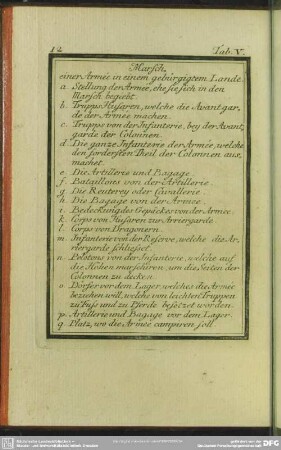 12.
Tab. V.
Marsch,
einer Armée in einem gebürgigtem Lande.
a. Stellung der Armée, ehe sie sich in den
Marsch begiebt.
b. Trupps Husaren, welche die Avant gar,
de der Armée machen.
c. Trupps von der Infanterie, bey der Avant,
garde der Colonnen.
d. Die ganze Infanterie der Armée, welche
den fordersten Theil der Colonnen aus,
machet.
e. Die Artillerie und Bagage.
f. Bataillons von der Artillerie.
g. Die Reuterey oder Cavallerie.
h. Die Bagage von der Armée.
i. Bedeckung des Gepäckes von der Armée.
k. Corps von Husaren zur Arriergarde.
l. Corps von Dragonern.
m. Infanterie von der Reserve, welche die Ar,
riergarde schliesset.
n. Pelotons von der Infanterie, welche auf
die Höhen marschiren, um die Seiten der
Colonnen zu decken.
o. Dörfer vor dem Lager, welches die Armée
beziehen will, welche von leichten Truppen
zu Fuss und zu Pferde besetzet worden.
p. Artillerie und Bagage vor dem Lager.
q. Platz, wo die Armée campiren soll.
gefördert von der
Deutschen Forschungsgemeinschaft
DFG